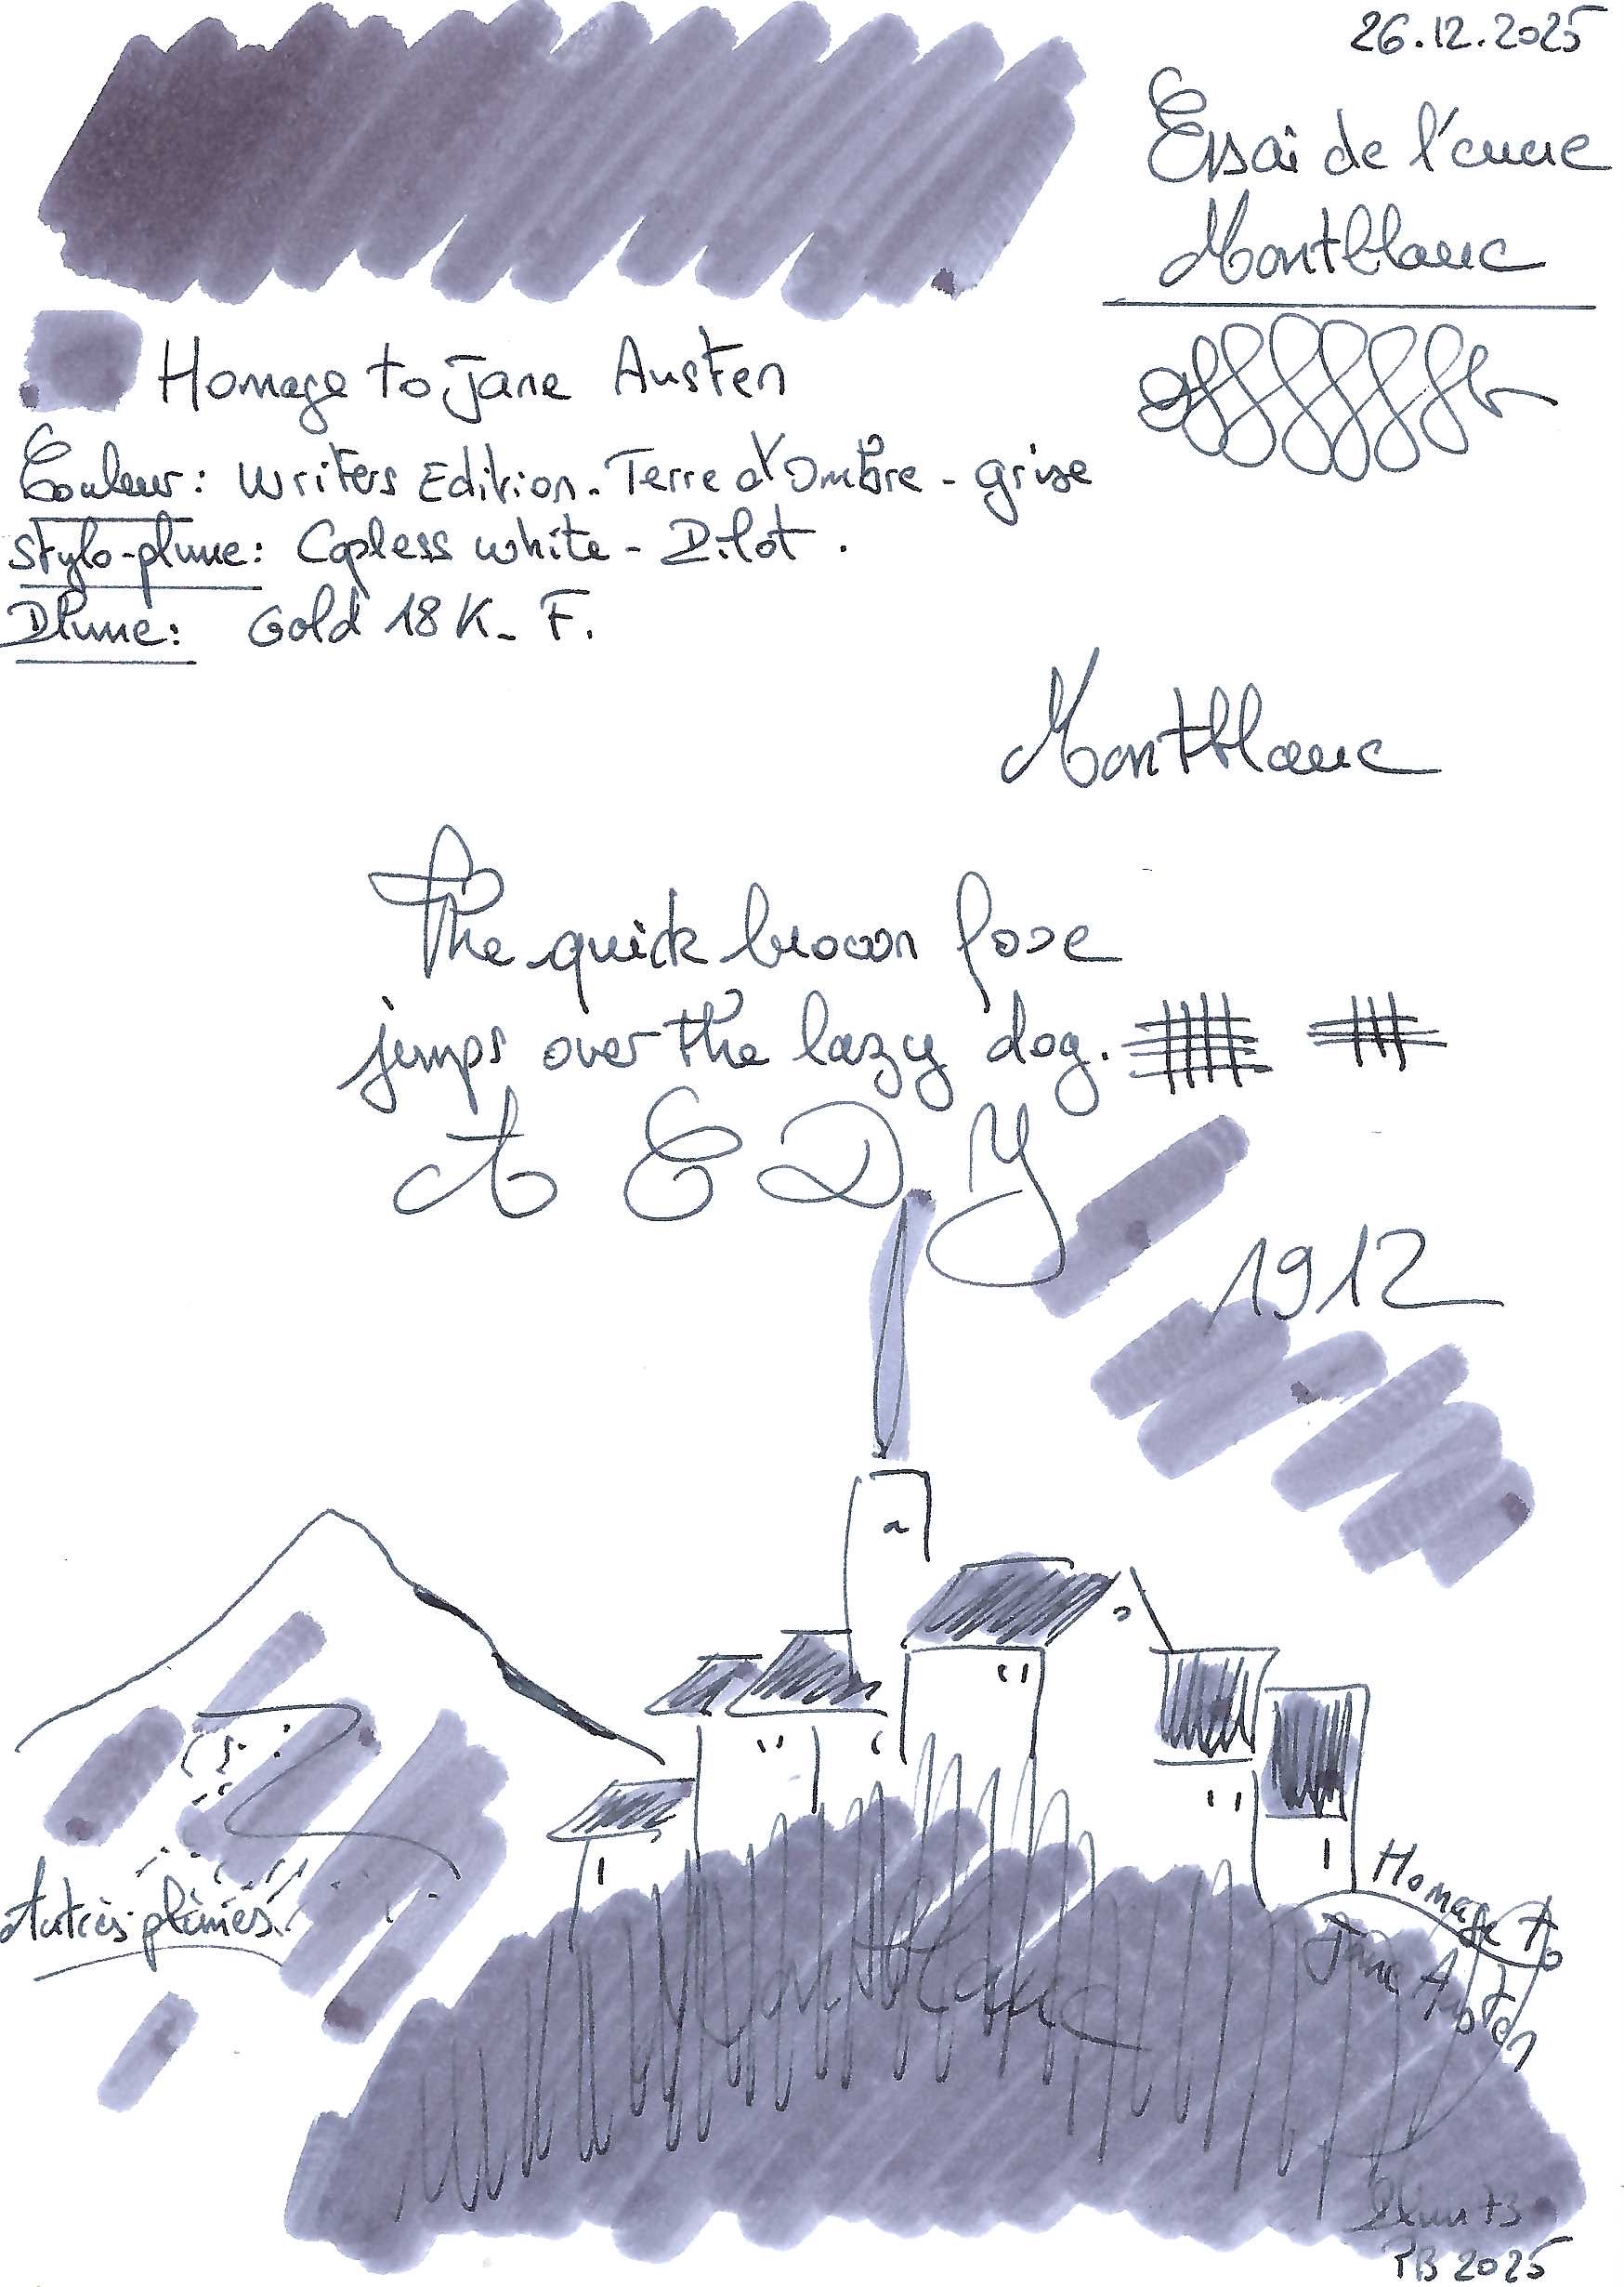 26.12.2025
Essai de l'encre
Montblanc
Homage to Jane Austen
Couleur: Writers Edition. Terre d'Ombre - grise
Stylo-plume: Capless white - Pilot.
Plume: Gold 18 K_ F.
Montblanc
The quick brown fox
jumps over the lazy dog.
A E D Y
1912
Autres plumes
Homage to
Jane Austen
Montblanc
PB 2025